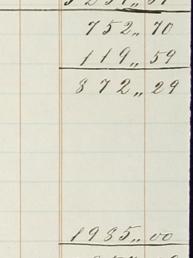 752,, 70
119,, 59
872,, 29
1935,, 00